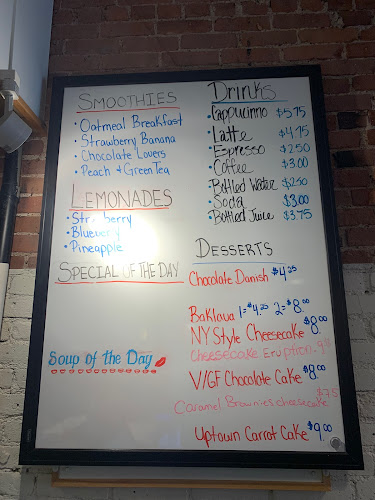 SMOOTHIES
• Oatmeal Breakfast
• Strawberry Banana
• Chocolate Lovers
• Peach + Green Tea
LEMONADES
• Blueberry
• Pineapple
SPECIAL OF THE DAY
Soup of the Day
Drinks
• Cappuccino $5.75
• Latte $4.75
• Espresso $2.50
• Coffee $3.00
• Bottled Water $2.50
• Soda $3.00
• Bottled Juice $3.75
DESSERTS
Chocolate Danish $4.25
Baklava 1=$4.25 2=$8.00
NY Style Cheesecake $8.00
Cheesecake Eruption
V/GF Chocolate Cake $8.00
Caramel Brownies cheesecake
Uptown Carrot Cake $9.00